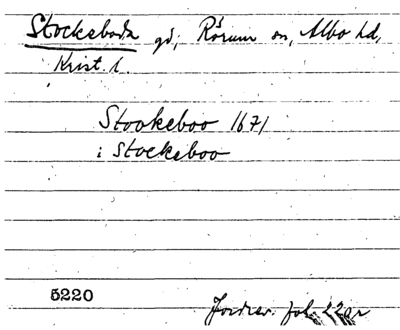 Stockeboda gd, Rörum sn, Albo hd,
Krist. l.
Stookeboo 1671
i Stockeboo
5220
Jordrev. fol. 22